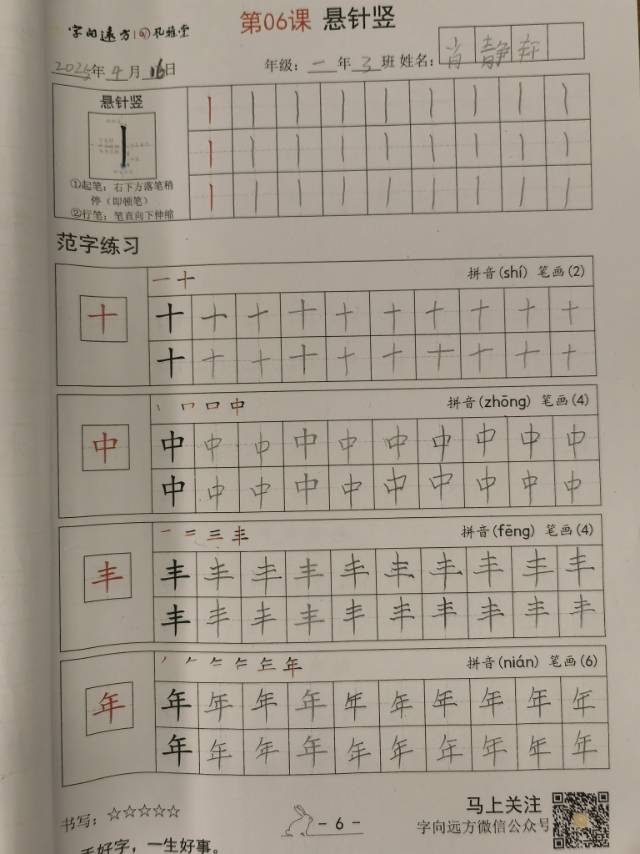 字向远方 孔雅堂
第06课 悬针竖
2025年4月16日 年级：二年3班 姓名：肖静
悬针竖
①起笔：右下方落笔稍
停（即顿笔）
②行笔：笔直向下伸缩
范字练习
一 十 拼音(shí) 笔画(2)
十 十 十 十 十 十 十 十 十 十 十
十 十 十 十 十 十 十 十 十 十
丨 冂 口 中 拼音(zhōng) 笔画(4)
中 中 中 中 中 中 中 中 中 中 中
中 中 中 中 中 中 中 中 中 中
一 二 三 丰 拼音(fēng) 笔画(4)
丰 丰 丰 丰 丰 丰 丰 丰 丰 丰 丰
丰 丰 丰 丰 丰 丰 丰 丰 丰 丰
年 拼音(nián) 笔画(6)
年 年 年 年 年 年 年 年 年 年 年
年 年 年 年 年 年 年 年 年 年
书写：☆☆☆☆☆
马上关注
- 6 - 字向远方微信公众号
手好字，一生好事。